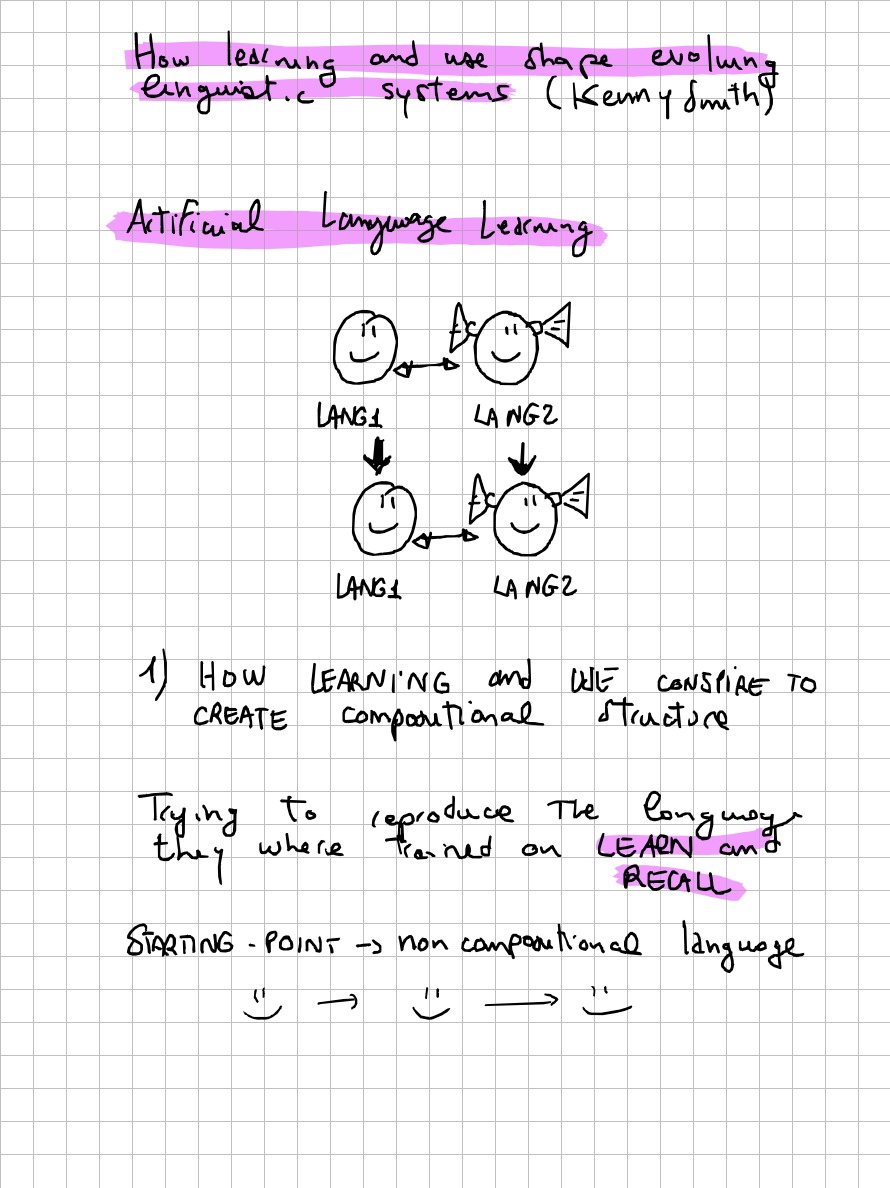 How learning and use shape evolving
linguistic systems (Kenny Smith)
Artificial Language Learning
LANG1 LANG2
LANG1 LANG2
1) HOW LEARNING and USE CONSPIRE TO
CREATE compositional structure
Trying to reproduce The language
they where trained on LEARN and
RECALL
STARTING-POINT → non compositional language